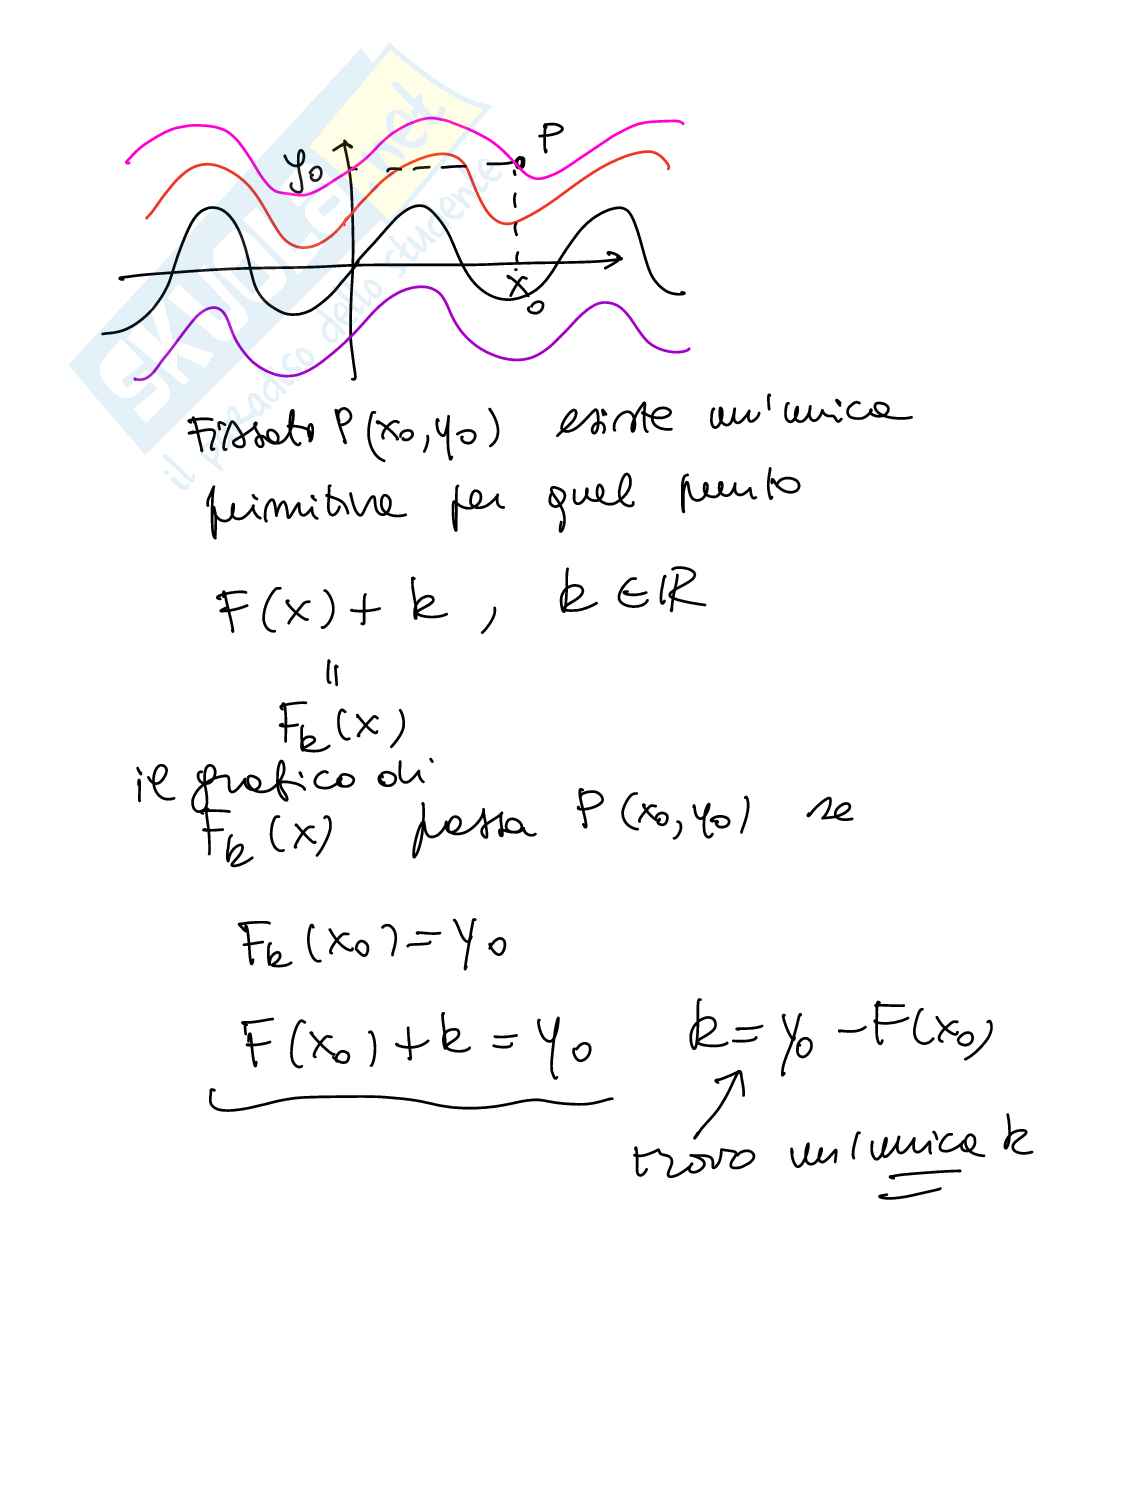 SKUOLA.net
il paradiso dello studente
y₀
P
x₀
Fissato P(x₀,y₀) esiste un'unica
primitiva per quel punto
F(x) + k , k ∈ ℝ
=
Fₖ(x)
il grafico di
Fₖ(x) passa P(x₀,y₀) se
Fₖ(x₀) = y₀
F(x₀) + k = y₀ k = y₀ - F(x₀)
trovo un'unica k